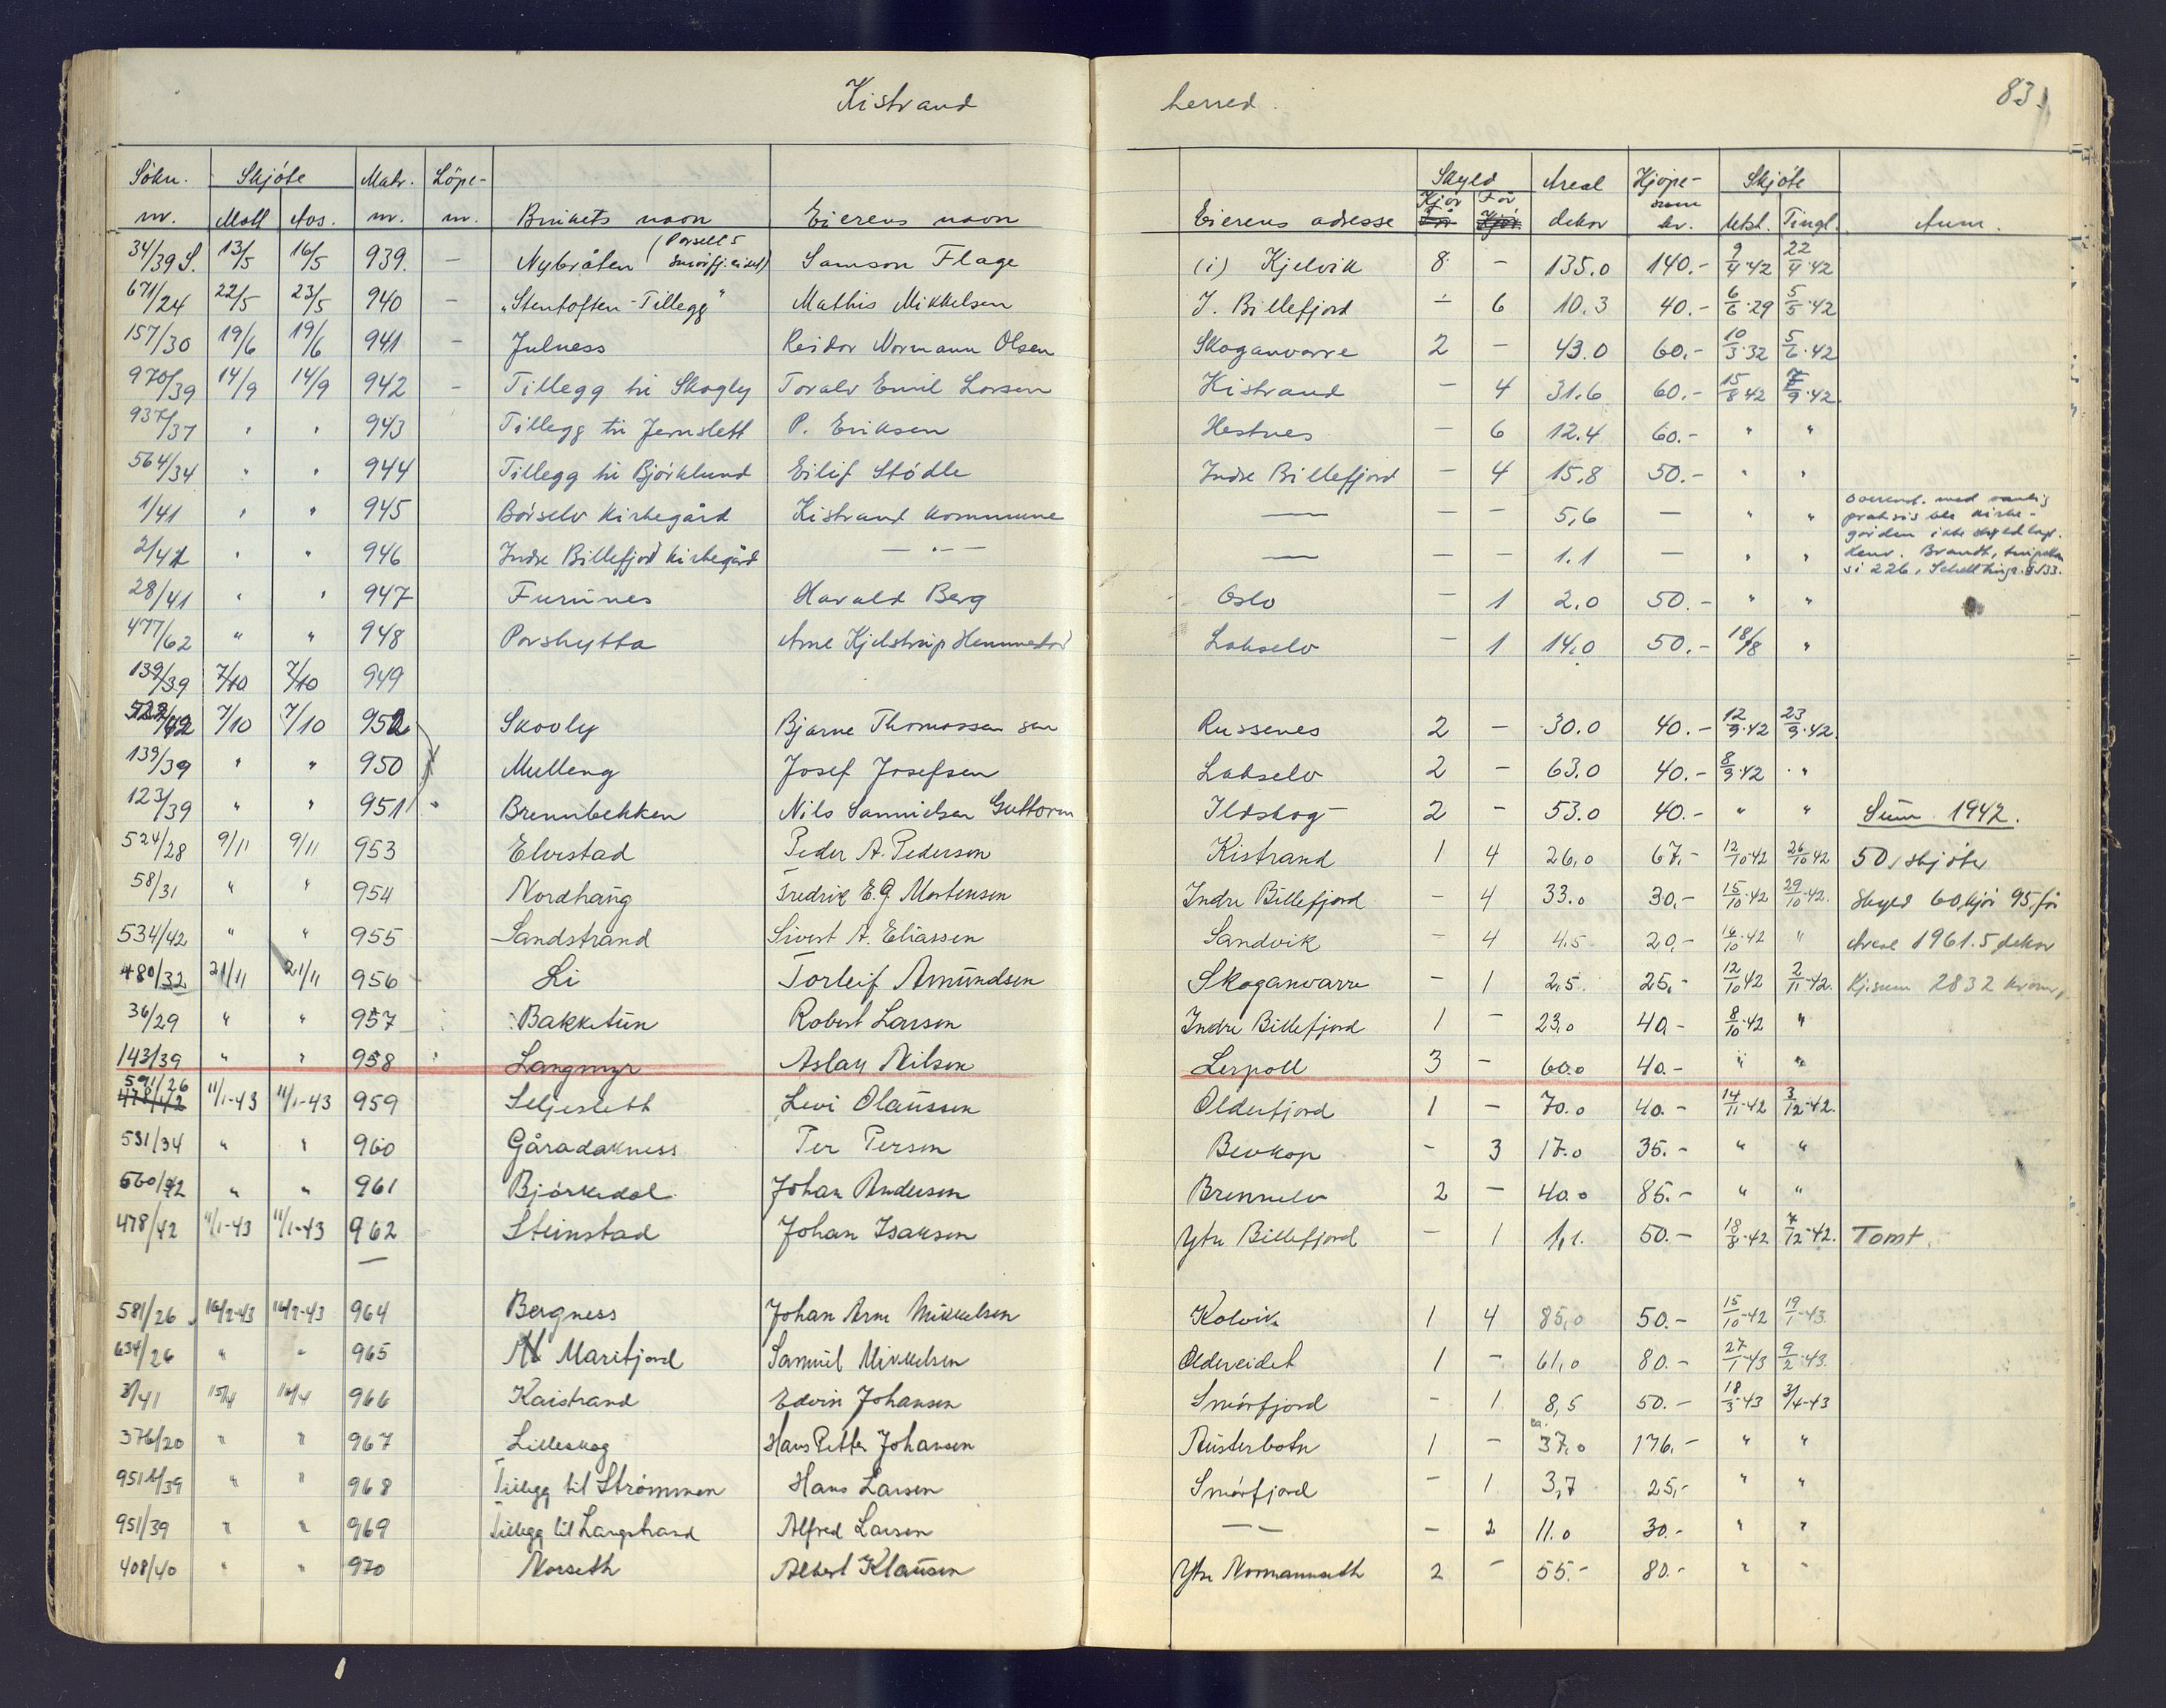 Kistrand herred. 83.
Søkn. Skjøte Matr. Løpe- Skyld Areal Kjøpe- Skjøte
nr. Mott Avs. nr. nr. Brukets navn Eierens navn Eierens adresse Kjør Får dekar sum kr. Utst. Tingl. Anm.
34/39 S. 13/5 16/5 939. — Nybråten (Parsell 5 Smörfj.eidet) Samson Flage (i) Kjelvik 8 — 135.0 140.- 9/4-42 22/4-42
671/24 22/5 23/5 940 — "Stentoften-Tillegg" Mathis Mikkelsen I. Billefjord — 6 10.3 40.- 6/6-29 5/5-42
157/30 19/6 19/6 941 — Julness Reidar Normann Olsen Skoganvarre 2 — 43.0 60.- 10/3-32 5/6-42
970/39 14/9 14/9 942 — Tillegg til Skogly Toralv Emil Larsen Kistrand — 4 31.6 60.- 15/8 42 7/9-42
937/37 " " 943 Tillegg til Jernslett P. Eriksen Hestnes — 6 12.4 60.- " "
564/34 " " 944 Tillegg til Björklund Eilif Stødle Indre Billefjord — 4 15.8 50.- " "
1/41 " " 945 Börselv kirkegård Kistrand kommune — — — 5,6 — " " Overensst. med vanlig
praksis ble kirke-
gården ikke skyldlagt.
2/41 " " 946 Indre Billefjord kirkegård — " — — — — 1.1 — " " Henv. Brandt,
s. 226,
28/41 " " 947 Furunes Harald Berg Oslo — 1 2.0 50.- " "
477/62 " " 948 Porshytta Arne Kjelstrup Lakselv — 1 14.0 50.- 18/8 "
139/39 7/10 7/10 949
7/10 7/10 952 Skogly Bjarne Thomassen sen Russenes 2 — 30.0 40.- 12/9-42 23/9-42
139/39 " " 950 Mulleng Josef Josefsen Lakselv 2 — 63.0 40.- 8/9-42 "
123/39 " " 951 Brennbekken Nils Samuelsen Guttorm Ildskog 2 — 53.0 40.- " " Sum 1942.
524/28 9/11 9/11 953 Elvestad Peder A. Pedersen Kistrand 1 4 26,0 67,- 12/10-42 26/10-42 50, skjöter
58/31 " " 954 Nordhaug Fredrik E.G. Mortensen Indre Billefjord — 4 33.0 30,- 15/10-42 29/10-42. Skyld 60,kjör 95,får
534/42 " " 955 Sandstrand Sivert A. Eliassen Sandvik — 4 4.5 20,- 16/10-42 " Areal 1961.5 dekar
480/32 21/11 21/11 956 Li Torleif Amundsen Skoganvarre — 1 2,5. 25,- 12/10 42 2/11-42. Kj.sum 2832 kroner
36/29 " " 957 Bakketun Robert Larsen Indre Billefjord 1 — 23,0 40,- 8/10-42 "
143/39 " " 958 Langmyr Aslak Nilsen Lerpoll 3 — 60.0 40.- " "
591/26 478/42 11/1-43 11/1-43 959 Seljeslett Levi Olaussen Olderfjord 1 — 70.0 40.- 14/11-42 3/12-42.
531/34 " " 960 Gåradakness Per Persen Bevkop — 3 17.0 35.- " "
560/42 " " 961 Björkedal Johan Andersen Brennelv 2 — 40.0 85.- " "
478/42 11/1-43 11/1-43 962 Steinstad Johan Isaksen Ytre Billefjord — 1 1,1. 50.- 18/8-42 7/12-42. Tomt.
—
581/26 16/2-43 16/2-43 964 Bergness Johan Arne Mikkelsen Kolvik 1 4 85,0 50.- 15/10-42 19/1-43.
634/26 " " 965 Marifjord Samuel Mikkelsen Oldereidet 1 — 61,0 80.- 27/1-43 9/2-43.
3/41 15/4 16/4 966 Kaistrand Edvin Johansen Smörfjord — 1 8,5 50.- 18/3-43 3/4-43
376/20 " " 967 Lilleskog Hans Petter Johansen Austerbotn 1 — ca. 37,0 176.- " "
951b/39 " " 968 Tillegg til Strømmen Hans Larsen Smörfjord — 1 3,7 25,- " "
951/39 " " 969 Tillegg til Langstrand Alfred Larsen — — 2 11.0 30.- " "
408/40 " " 970 Norseth Albert Klausen Ytre Normannseth 2 — 55.- 80.- " "